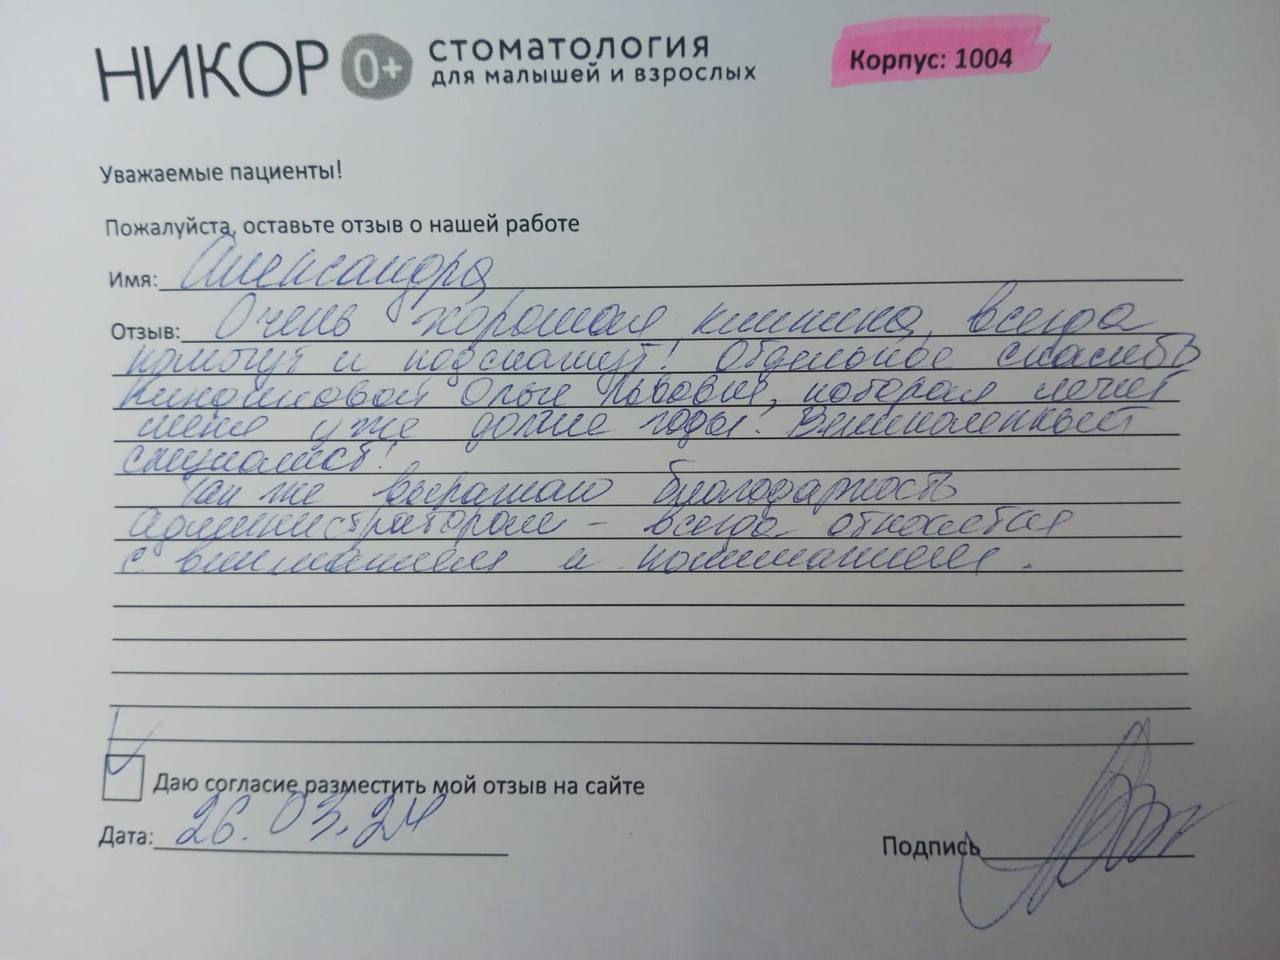 НИКОР 0+ СТОМАТОЛОГИЯ
ДЛЯ МАЛЫШЕЙ И ВЗРОСЛЫХ
Корпус: 1004
Уважаемые пациенты!
Пожалуйста, оставьте отзыв о нашей работе
Имя: Александра
Отзыв: Очень хорошая клиника, всегда
помогут и подскажут! Отдельное спасибо
Ольге Львовне, которая лечит
меня уже долгие годы! Великолепный
специалист!
Так же выражаю благодарность
администраторам – всегда относятся
с вниманием и пониманием.
Даю согласие разместить мой отзыв на сайте
Дата: 26.03.24
Подпись